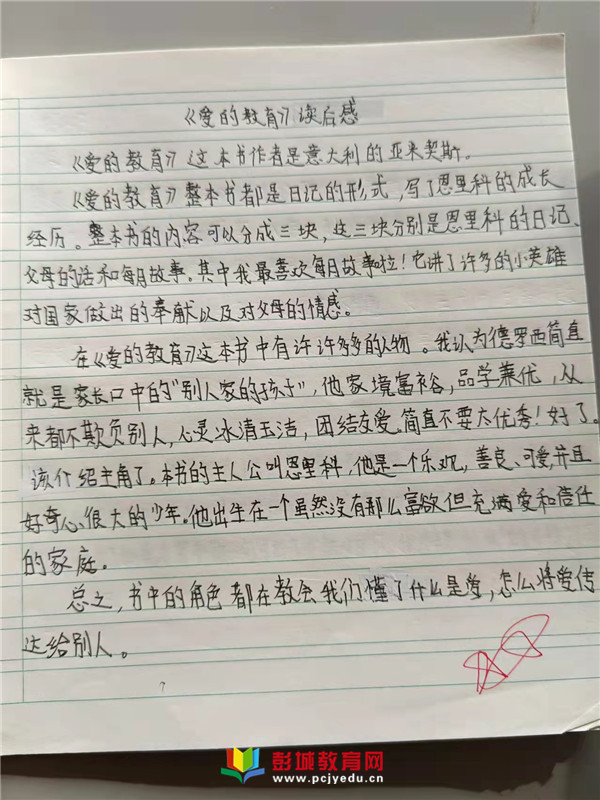 《爱的教育》读后感
《爱的教育》这本书作者是意大利的亚米契斯。
《爱的教育》整本书都是日记的形式，写了恩里科的成长
经历。整本书的内容可以分成三块，这三块分别是恩里科的日记、
父母的话和每月故事。其中我最喜欢每月故事啦！它讲了许多的小英雄
对国家做出的奉献以及对父母的情感。
在《爱的教育》这本书中有许许多多的人物。我认为德罗西简直
就是家长口中的“别人家的孩子”，他家境富裕，品学兼优，从
来都不欺负别人，心灵冰清玉洁，团结友爱。简直不要太优秀！好了。
该介绍主角了。本书的主人公叫恩里科，他是一个乐观，善良、可爱，并且
好奇心很大的少年。他出生在一个虽然没有那么富欲但充满爱和信任
的家庭。
总之，书中的角色都在教会我们懂了什么是爱，怎么将爱传
达给别人。
彭城教育网
www.pcjyedu.cn